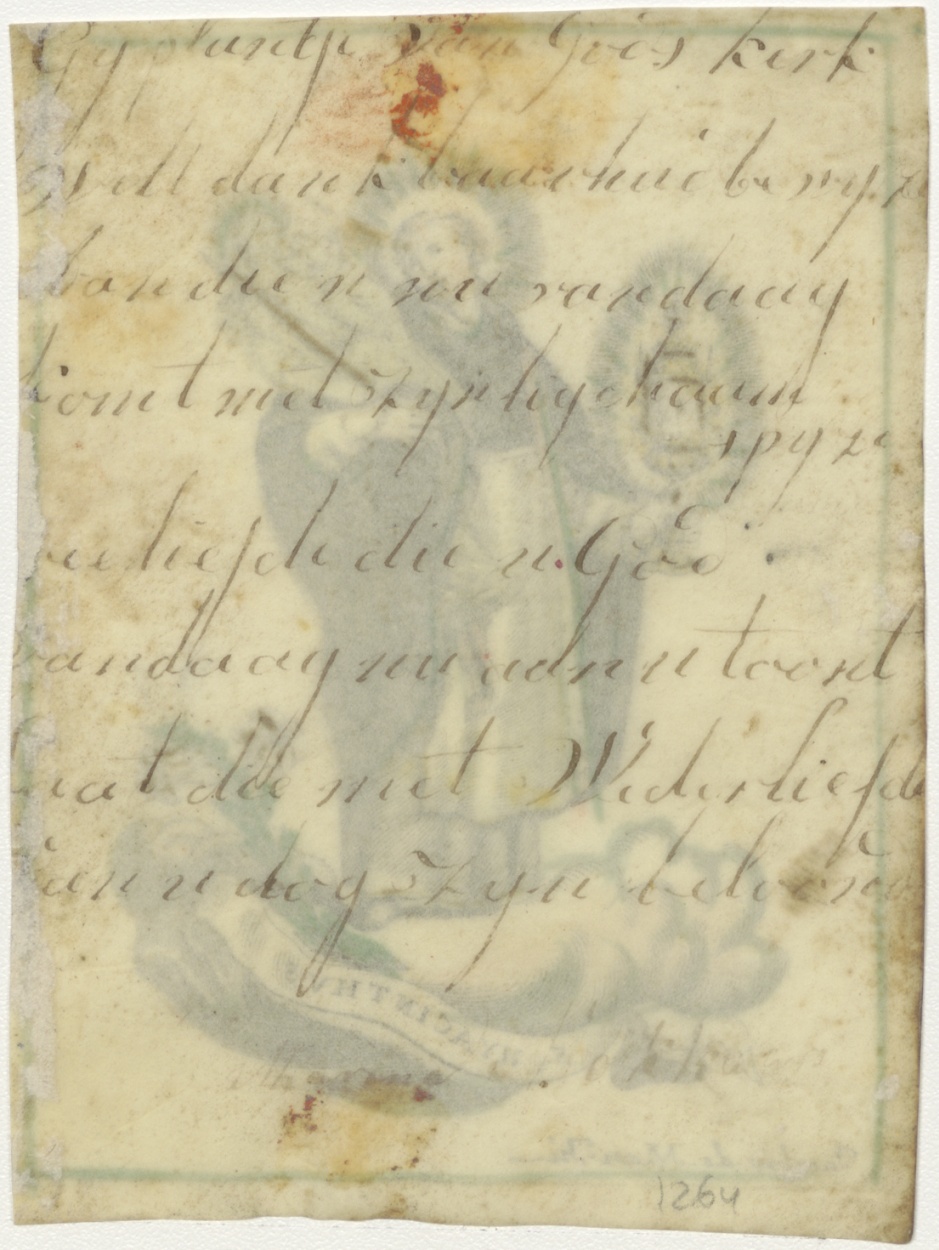 Gy plantje van Gods kerk
wilt dankbaarheid bewyze
van die n nu vandaag
komt met zyn lighaam
spyze
de liefde die u God
vandaag nu aan u toont
laat die met Wederliefde
aen u dog zyn beloond
HYACINTHUS
1264